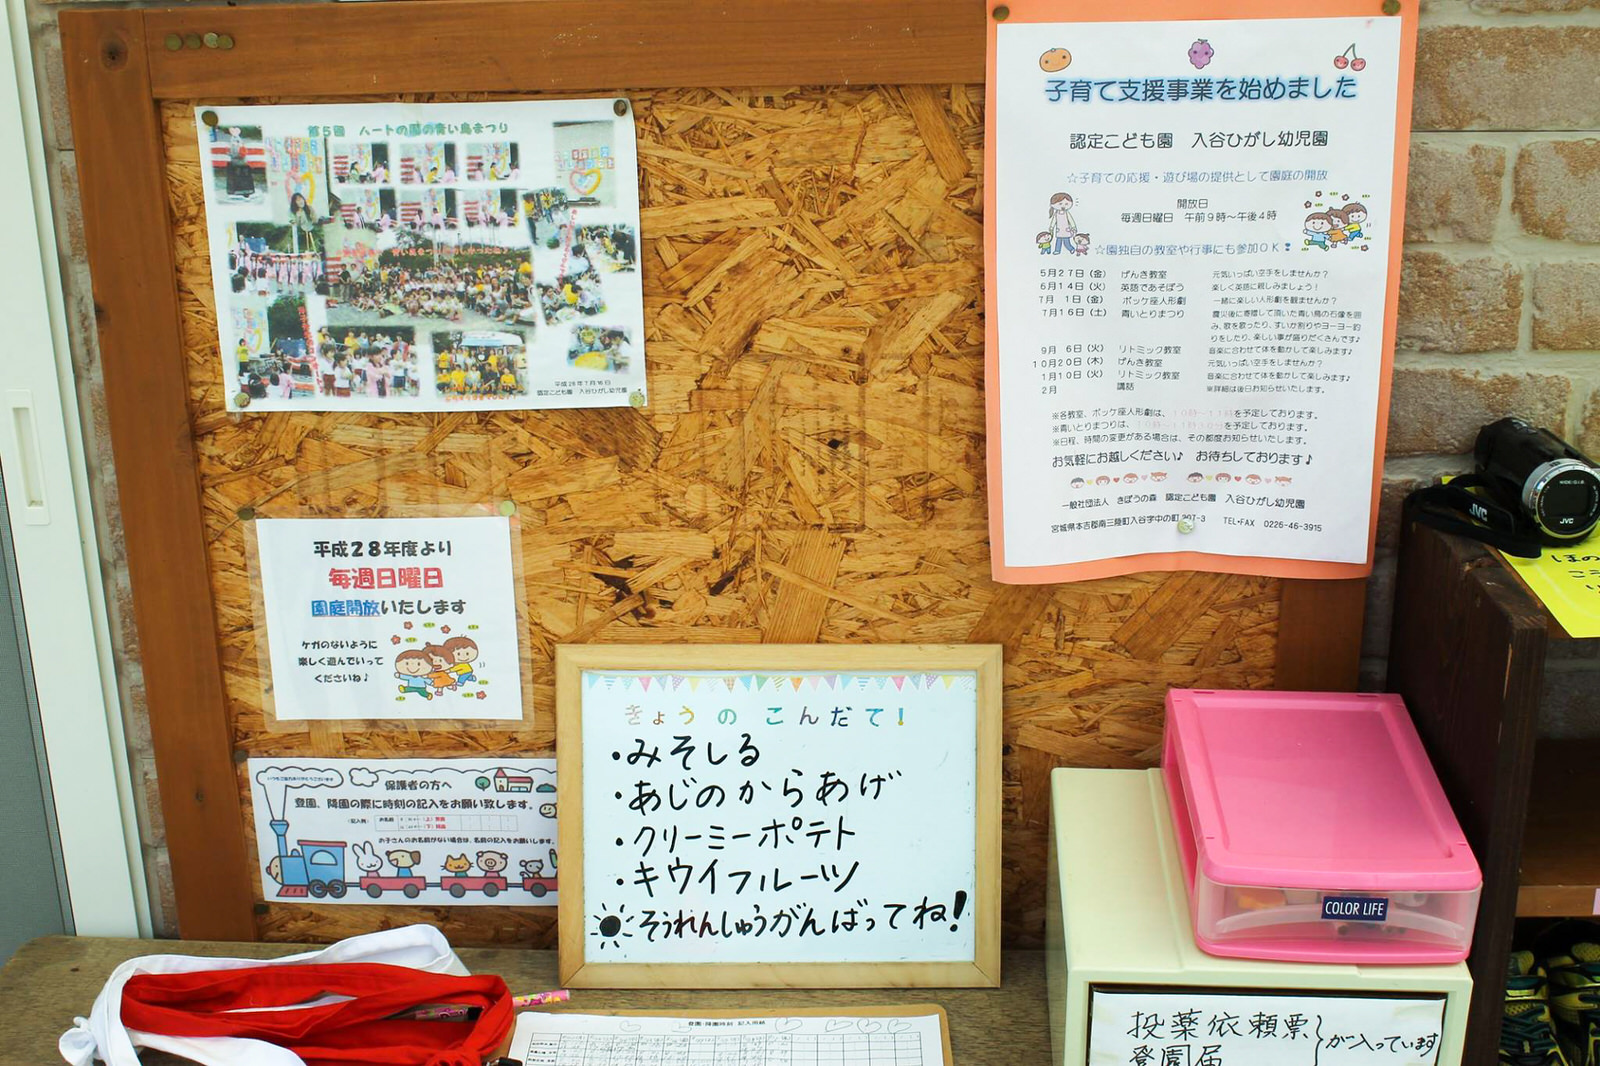 第5回 ハートの園の青い鳥まつり
平成28年7月16日
認定こども園 入谷ひがし幼児園
子育て支援事業を始めました
認定こども園 入谷ひがし幼児園
☆子育ての応援・遊び場の提供として園庭の開放
開放日
毎週日曜日 午前9時~午後4時
☆園独自の教室や行事にも参加OK!
5月27日(金) げんき教室 元気いっぱい空手をしませんか?
6月14日(火) 英語であそぼう 楽しく英語に親しみましょう!
7月 1日(金) ポッケ座人形劇 一緒に楽しい人形劇を観ませんか?
7月16日(土) 青いとりまつり 震災後に寄贈して頂いた青い鳥の石像を囲
み、歌を歌ったり、すいか割りやヨーヨー釣
りをしたり、楽しい事が盛りだくさんです♪
9月 6日(火) リトミック教室 音楽に合わせて体を動かして楽しみます♪
10月20日(木) げんき教室 元気いっぱい空手をしませんか?
1月10日(火) リトミック教室 音楽に合わせて体を動かして楽しみます♪
2月 講話 ※詳細は後日お知らせいたします。
※各教室、ポッケ座人形劇は、10時~11時を予定しております。
※青いとりまつりは、10時~11時30分を予定しております。
※日程、時間の変更がある場合は、その都度お知らせいたします。
お気軽にお越しください♪ お待ちしております♪
一般社団法人 きぼうの森 認定こども園 入谷ひがし幼児園
宮城県本吉郡南三陸町入谷字中の町 -3 TEL・FAX 0226-46-3915
平成28年度より
毎週日曜日
園庭開放いたします
ケガのないように
楽しく遊んでいって
くださいね♪
いつもご協力ありがとうございます
保護者の方へ
登園、降園の際に時刻の記入をお願い致します。
(記入例) お名前
お子さんのお名前がない場合は、名前の記入をお願いします。
きょうのこんだて!
・みそしる
・あじのからあげ
・クリーミーポテト
・キウイフルーツ
そうれんしゅうがんばってね!
登園・降園時刻 記入用紙
COLOR LIFE
投薬依頼票
登園届
}が入っています
JVC
JVC
ほの
こう